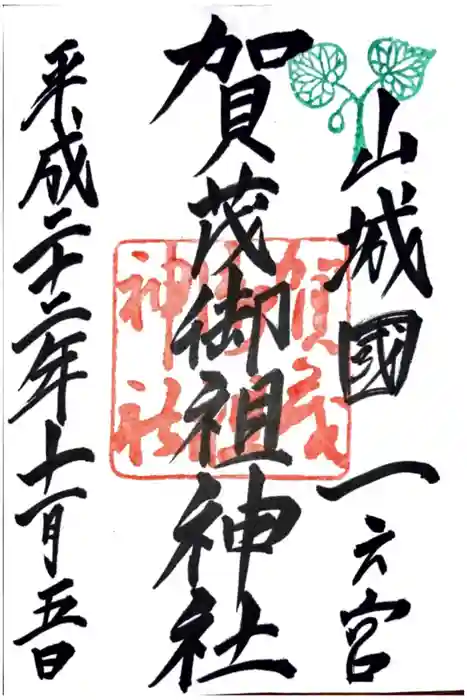 山城國一之宮
賀茂御祖神社
平成二十二年十一月五日
賀茂
御祖
神社